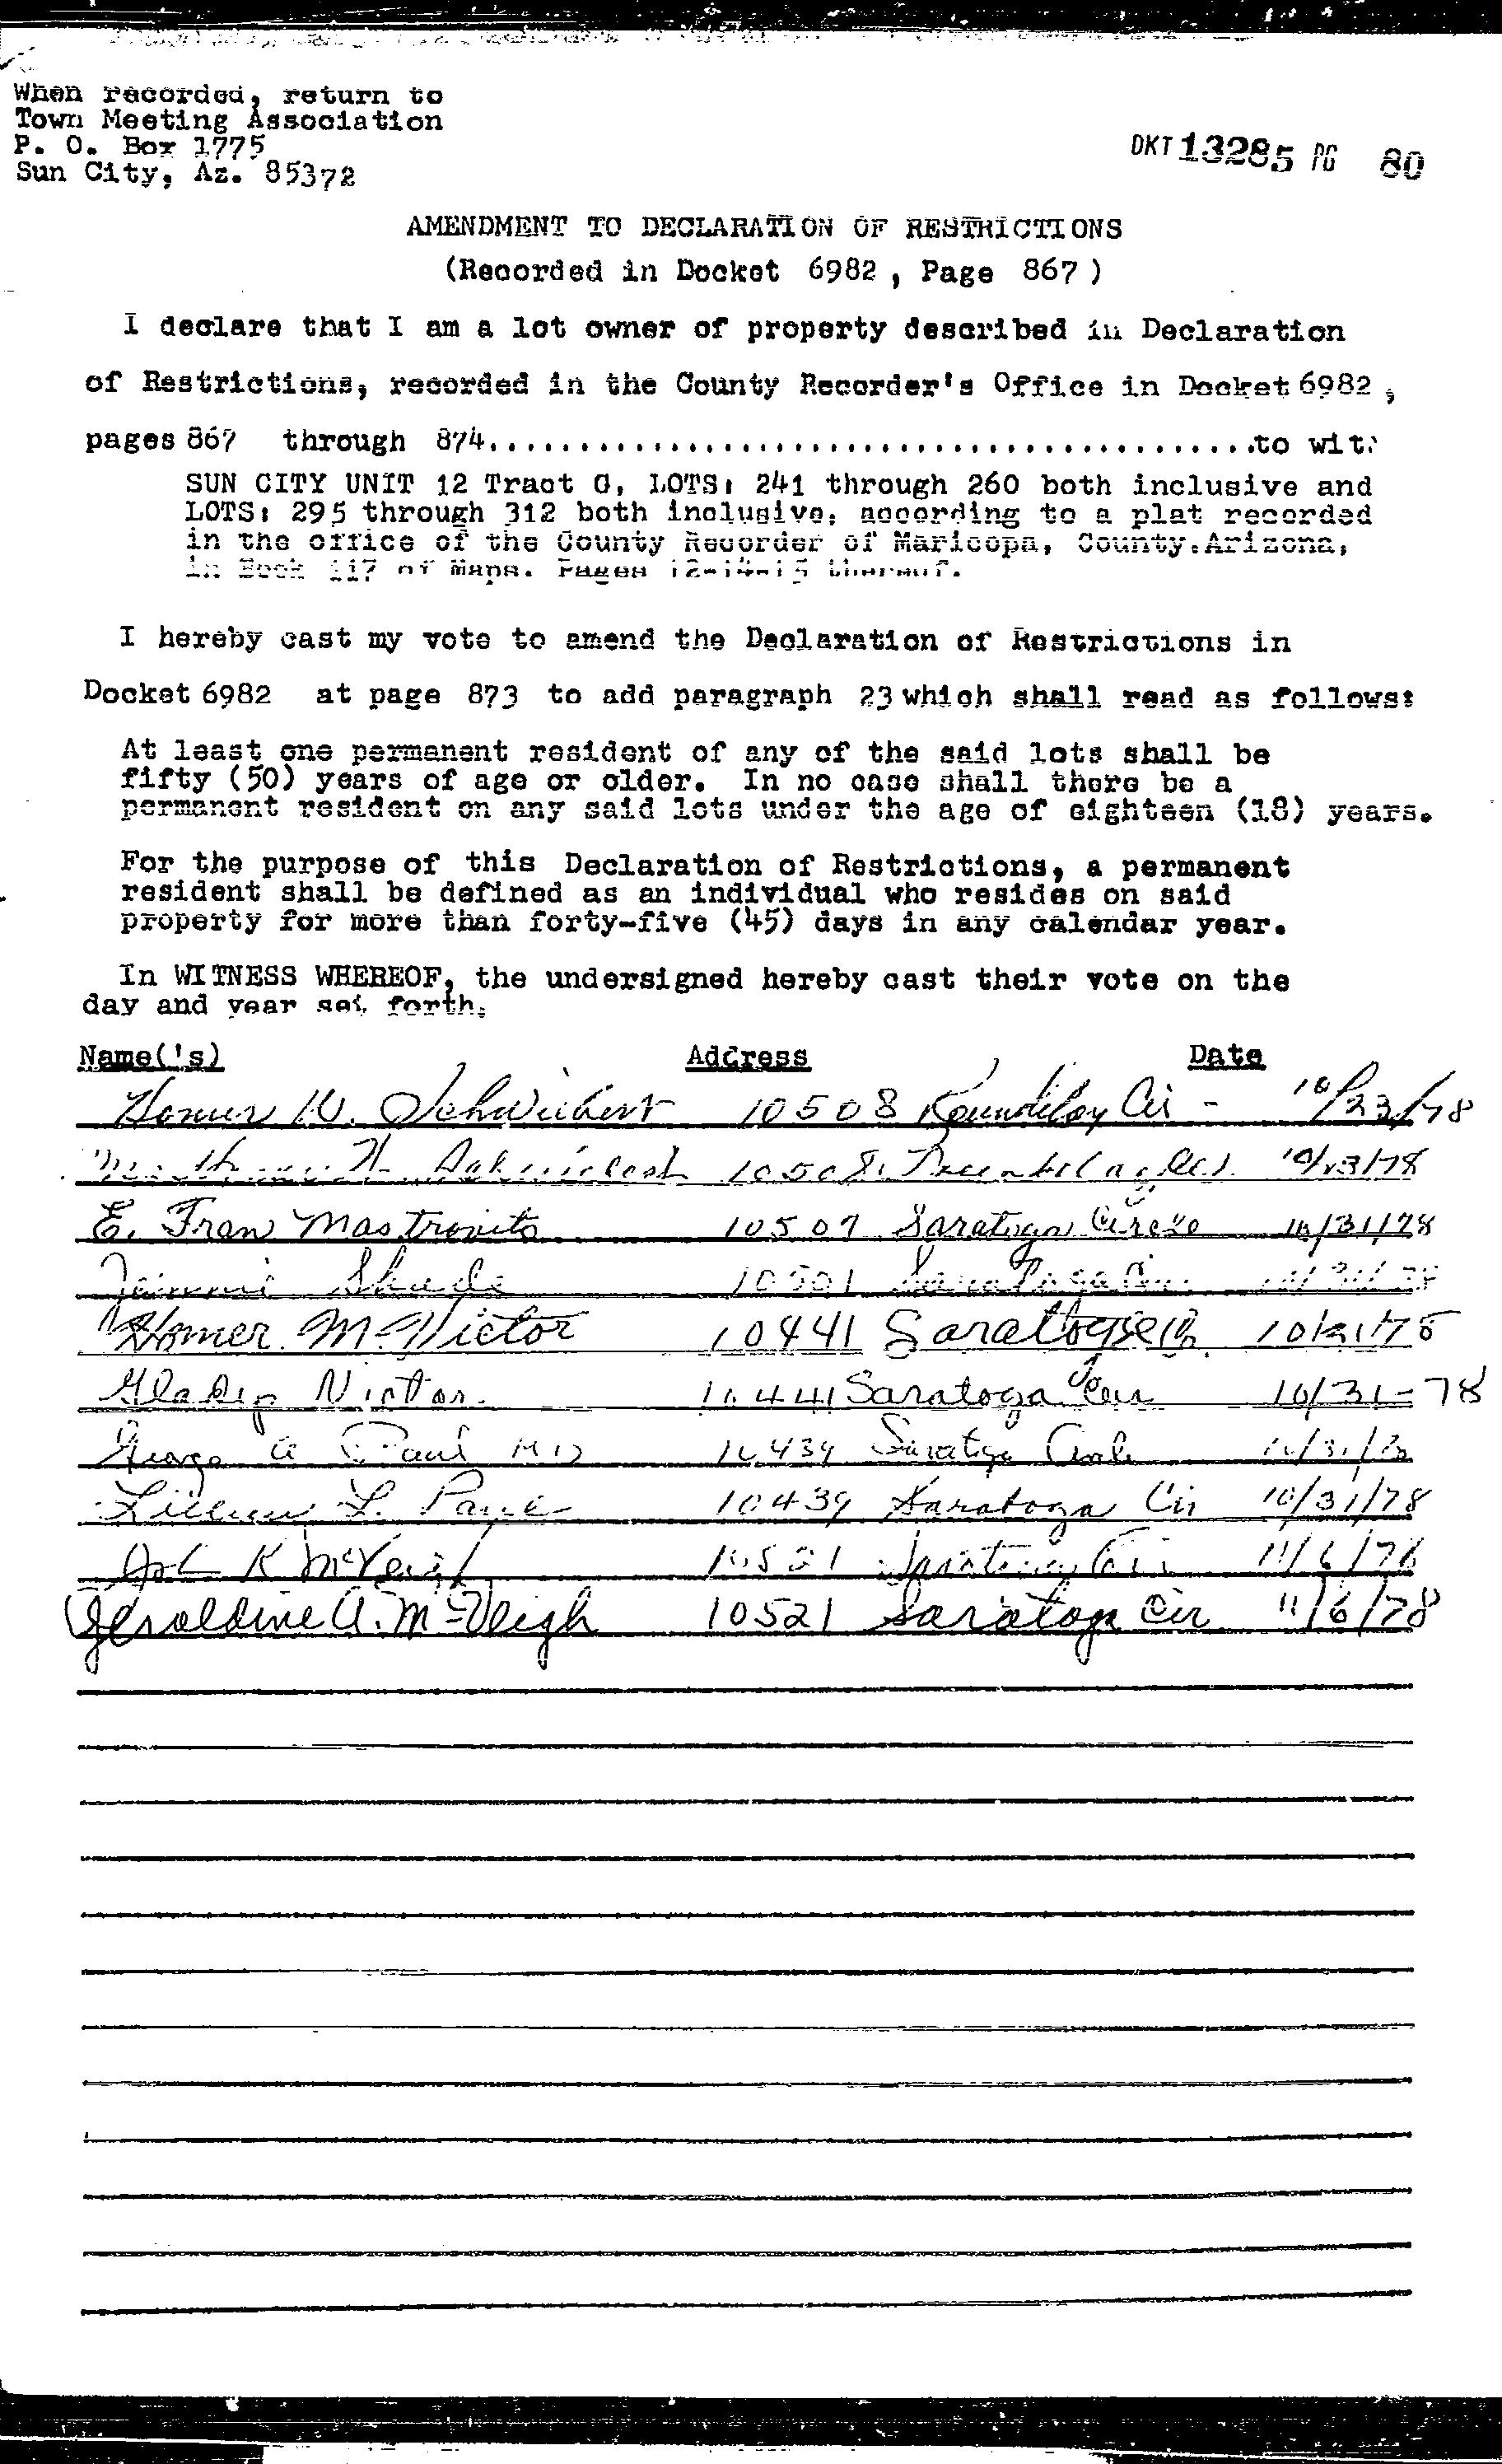 When recorded, return to
Town Meeting Association
P. O. Box 1775
Sun City, Az. 85372
DKT 13285 PG 80
AMENDMENT TO DECLARATION OF RESTRICTIONS
(Recorded in Docket 6982, Page 867)
I declare that I am a lot owner of property described in Declaration
of Restrictions, recorded in the County Recorder's Office in Docket 6982,
pages 867 through 874..........................................to wit:
SUN CITY UNIT 12 Tract G, LOTS: 241 through 260 both inclusive and
LOTS: 295 through 312 both inclusive, according to a plat recorded
in the office of the County Recorder of Maricopa, County, Arizona,
in Book 117 of Maps. Pages thereof.
I hereby cast my vote to amend the Declaration of Restrictions in
Docket 6982 at page 873 to add paragraph 23 which shall read as follows:
At least one permanent resident of any of the said lots shall be
fifty (50) years of age or older. In no case shall there be a
permanent resident on any said lots under the age of eighteen (18) years.
For the purpose of this Declaration of Restrictions, a permanent
resident shall be defined as an individual who resides on said
property for more than forty-five (45) days in any calendar year.
In WITNESS WHEREOF, the undersigned hereby cast their vote on the
day and year set forth.
Name('s) Address Date
Homer W. 10508 Cir - 10/23/78
10508 10/23/78
E. Fran Mastrovito 10507 Saratoga Circle 10/31/78
Shade
Homer M. Victor 10441 Saratoga Cir. 10/31/78
Gladys Victor 10441 Saratoga Cir 10/31-78
George A Paul MD 10439 Saratoga Circle
L. 10439 Saratoga Cir 10/31/78
K McVeigh 10521 Saratoga Cir 11/6/78
Geraldine A. McVeigh 10521 Saratoga Cir 11/6/78